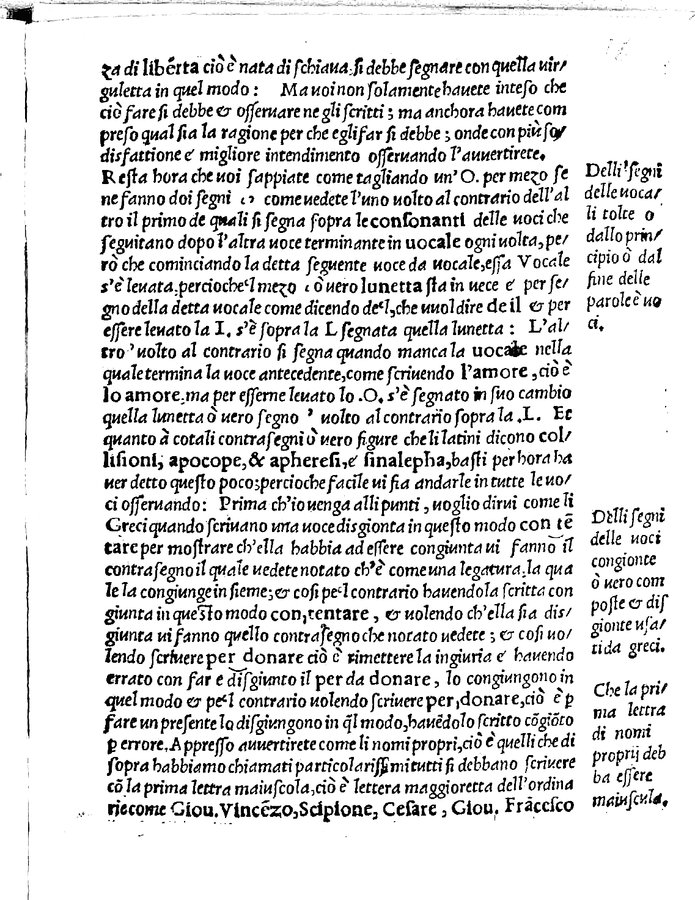 za di libẽrta ciò è nata di ſchiava. ſi debbe ſegnare con queſta uir/
guletta in quel modo : Ma uoi non ſolamente hauete inteſo che
ciò fare ſi debbe & oſſeruare ne gli ſcritti ; ma anchora hauete com
preſo qual ſia la ragione per che egli far ſi debbe ; onde con più ſo/
disfattione e migliore intendimento oſſeruando l'auuertirete.
Reſta hora che uoi ſappiate come tagliando un' O. per mezo ſe
ne fanno doi ſegni come uedete l'uno uolto al contrario dell'al
tro il primo de quali ſi ſegna ſopra le conſonanti delle uoci che
ſeguitano dopo l'altra uoce terminante in uocale ogni uolta, pe/
rò che cominciando la detta ſeguente uoce da uocale, eſſa Vocale
s'è leuata. percioche'l mezo ò uero lunetta ſta in uece e per ſe/
gno della detta uocale come dicendo de'l, che uuol dire de il & per
eſſere leuato la I. s'è ſopra la L ſegnata quella lunetta : L'al/
tro ' uolto al contrario ſi ſegna quando manca la uocale nella
quale termina la uoce antecedente, come ſcriuendo l'amore, ciò è
lo amore. ma per eſſerne leuato lo .O. s'è ſegnato in ſuo cambio
quella lunetta ò uero ſegno ' uolto al contrario ſopra la .L. Et
quanto à cotali contraſegni ò uero figure che li latini dicono col/
liſioni, apocope, & aphereſi, e ſinalepha, baſti per hora ha
uer detto queſto poco; percioche facile ui fia andarle in tutte le uo/
ci oſſeruando : Prima ch'io uenga alli punti, uoglio dirui come li
Greci quando ſcriuano una uoce disgionta in queſto modo con tẽ
tare per moſtrare ch'ella habbia ad eſſere congiunta ui fanno il
contraſegno il quale uedete notato ch'è come una legatura. la qua
le la congiunge inſieme; & coſi pe'l contrario hauendola ſcritta con
giunta in queſto modo con,tentare, & uolendo ch'ella ſia dis/
giunta ui fanno quello contraſegno che notato uedete ; & coſi uo/
lendo ſcriuere per donare ciò è rimettere la ingiuria e hauendo
errato con far e disgiunto il per da donare, lo congiungono in
quel modo & pe'l contrario uolendo ſcriuere per,donare, ciò è ꝑ
fare un preſente lo disgiungono in q̃l modo, hauẽdolo ſcritto cõgiõto
ꝑ errore. Appreſſo auuertirete come li nomi propri, ciò è quelli che di
ſopra habbiamo chiamati particolariſſimi tutti ſi debbano ſcriuere
cõ la prima lettra maiuſcola, ciò è lettera maggioretta dell'ordina
rie come Giou. Vincẽzo, Scipione, Ceſare, Giou. Frãceſco
Delli ſegni
delle uoca/
li tolte o
dallo prin/
cipio ò dal
fine delle
parole è uo
ci.
Delli ſegni
delle uoci
congionte
ò uero com
poſte & diſ
gionte uſa/
ti da greci.
Che la pri/
ma lettra
di nomi
proprij deb
ba eſſere
maiuſcula.